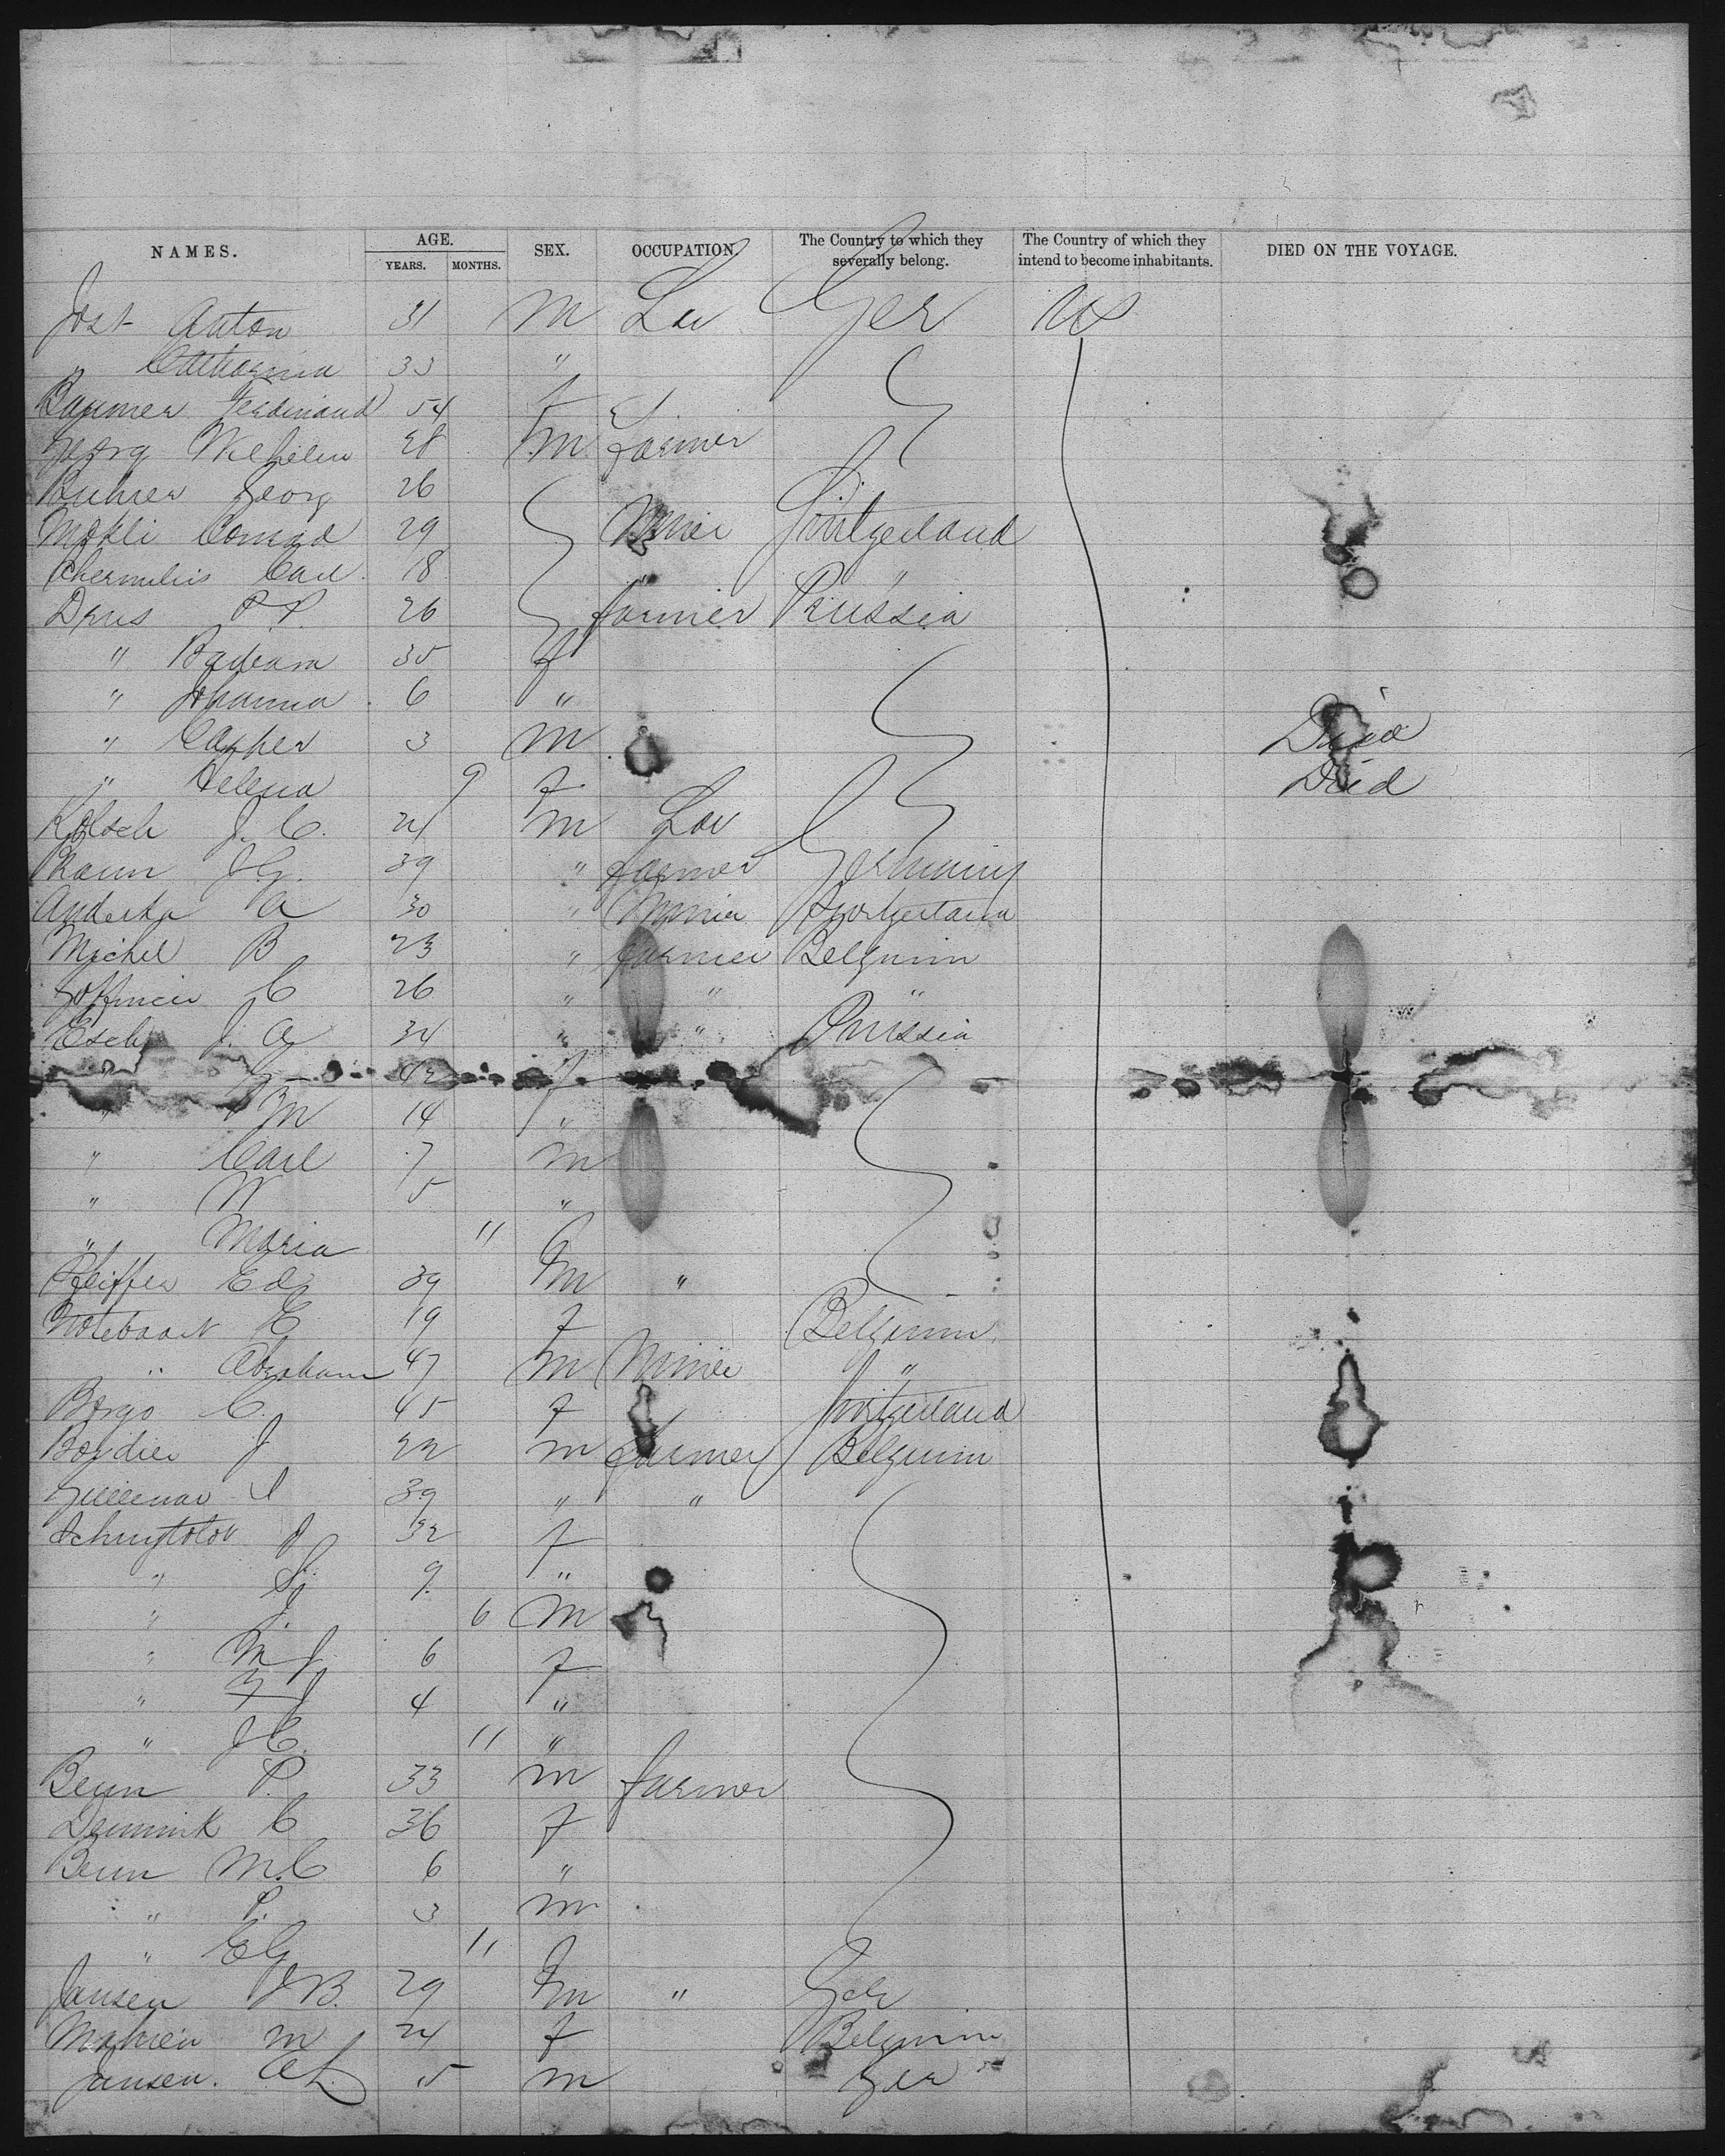 NAMES. AGE. YEARS. MONTHS. SEX. OCCUPATION. The Country to which they severally belong. The Country of which they intend to become inhabitants. DIED ON THE VOYAGE.
Jost Anton 31 M Lab Ger US
" Catharina 33 "
Baumer Ferdinand 54 f
Georg Wilhelm 28 m farmer
Buhrer Georg 26
Conrad 29 Miner Switzerland
Carl 18 " "
P.P. 26 farmer Prussia
" Barbara 35 f
" Johanna 6 "
" Casper 3 m Died
" Helena 9 f Died
Kolsch J. C. 24 m Lab
J. G. 39 " farmer Germany
A 30 " Miner Switzerland
Michel B 23 " farmer Belgium
C 26 " " "
Esch J. A 34 " " Prussia
" 42 f
" M 14 "
" Carl 7 m
" W 5 "
" Maria 11 f
Pfeiffer Ed 39 m "
Notebaart E 19 f Belgium
" Abraham 47 m Miner "
Borgo C. 45 f Switzerland
Bordier J 22 m farmer Belgium
39 " "
32 f
" 9 "
" J. 6 m
" M J 6 f
" J 4 "
" J C. 11 "
Beun P. 33 m farmer
C 36 f
Beun M. C 6 "
" P. 3 m
" 11 f
Jansen J B. 29 m " Ger
m 24 f Belgium
Jansen. 5 m Ger